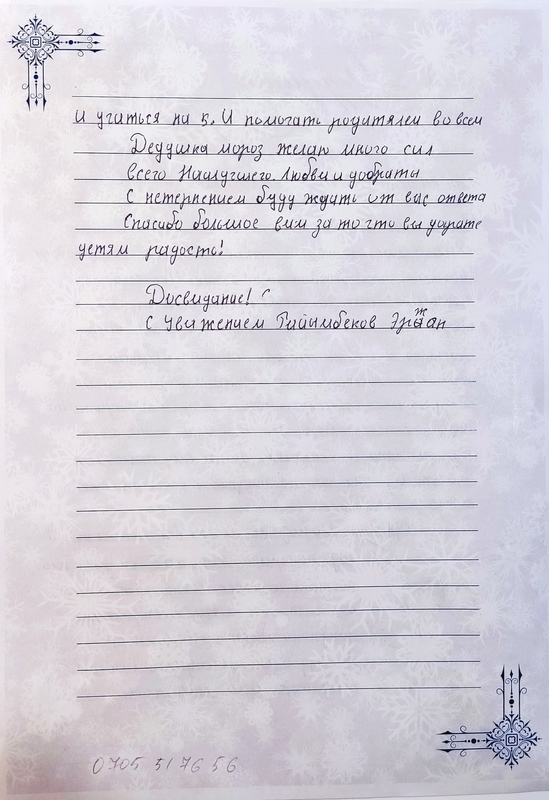 и учиться на 5. И помогать родителем во всем
Дедушка мороз желаю много сил
всего Наилучшего. Любви и добраты
С нетерпением буду ждать от вас ответа
Спасибо большое вам за то что вы дарате
детям радость!
Досвидание!
С уважением Тайымбеков Эржан
0705 517656